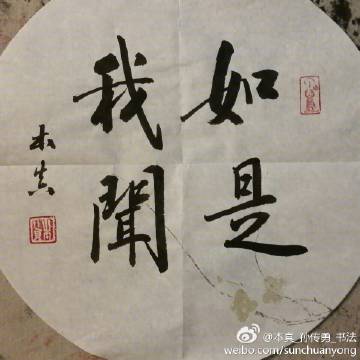 如是
我聞
本真
@本真_孙传勇_书法
weibo.com/sunchuanyong